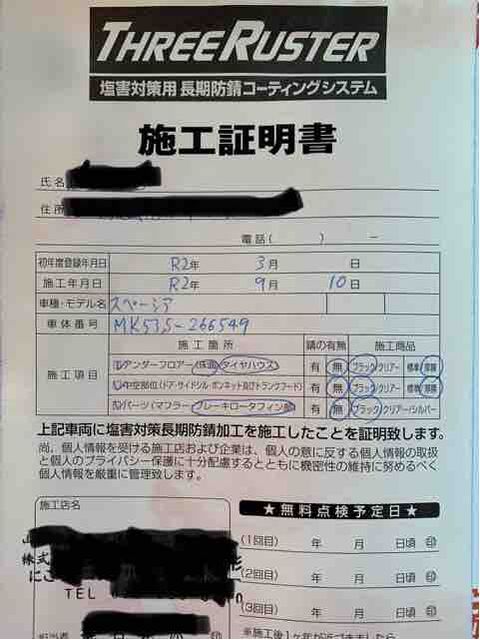 THREERUSTER
塩害対策用 長期防錆コーティングシステム
施工証明書
氏名
住所
電話( ) −
初年度登録年月日 R2年 3月 日
施工年月日 R2年 9月 10日
車種・モデル名 スペーシア
車体番号 MK53S-266549
施工項目 施工箇所 錆の有無 施工商品
(1)アンダーフロアー(低面・タイヤハウス) 有 無 ブラック/クリアー 標準
(2)中空部位(ドア・サイドシル・ボンネット及びトランクフード) 有 無 ブラック/クリアー 標準
(3)パーツ(マフラー・ブレーキロータフィン部) 有 無 ブラック/クリアー/シルバー
上記車両に塩害対策長期防錆加工を施工したことを証明致します。
尚、個人情報を受ける施工店および企業は、個人の意に反する個人情報の取扱
と個人のプライバシー保護に十分配慮するとともに機密性の維持に努めるべく
個人情報を厳重に管理致します。
施工店名
株式
TEL
★無料点検予定日★
(1回目) 年 月 日頃 ㊞
(2回目) 年 月 日頃 ㊞
(3回目) 年 月 日頃 ㊞
担当者
※施工後1ヶ年が近づきましたら